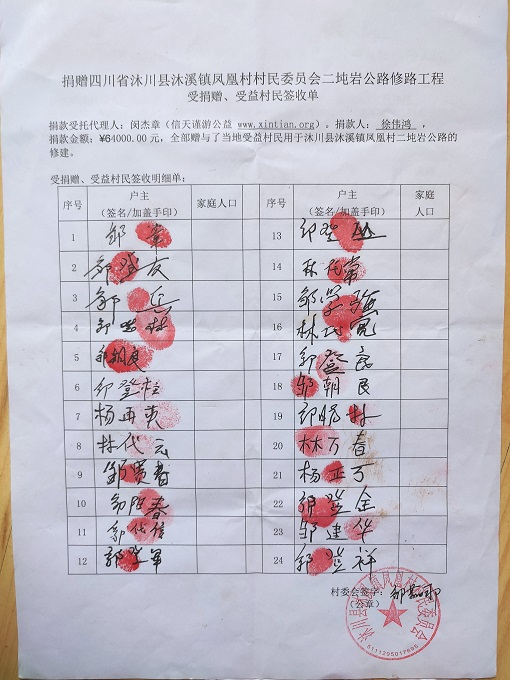 捐赠四川省沐川县沐溪镇凤凰村村民委员会二坉岩公路修路工程
受捐赠、受益村民签收单
捐款受托代理人：闵杰章（信天谨游公益 www.xintian.org）。捐款人： 徐伟鸿 ，
捐款金额：¥64000.00 元，全部赠与了当地受益村民用于沐川县沐溪镇凤凰村二坉岩公路的
修建。
受捐赠、受益村民签收明细单：
序号 户主（签名/加盖手印） 家庭人口 序号 户主（签名/加盖手印） 家庭人口
1 13
2 邹登友 14 林代常
3 邹兵 15 邹学强
4 16 林代宽
5 邹朝良 17 邹登民
6 邹登柱 18 邹朝良
7 杨再 19 林
8 林代云 20 林万春
9 邹贤春 21 杨亚万
10 春 22 邹登全
11 邹代信 23 邹建华
12 邹登军 24 邹登祥
村委会签字：
（公章）
沐川县沐溪镇凤凰村村民委员会